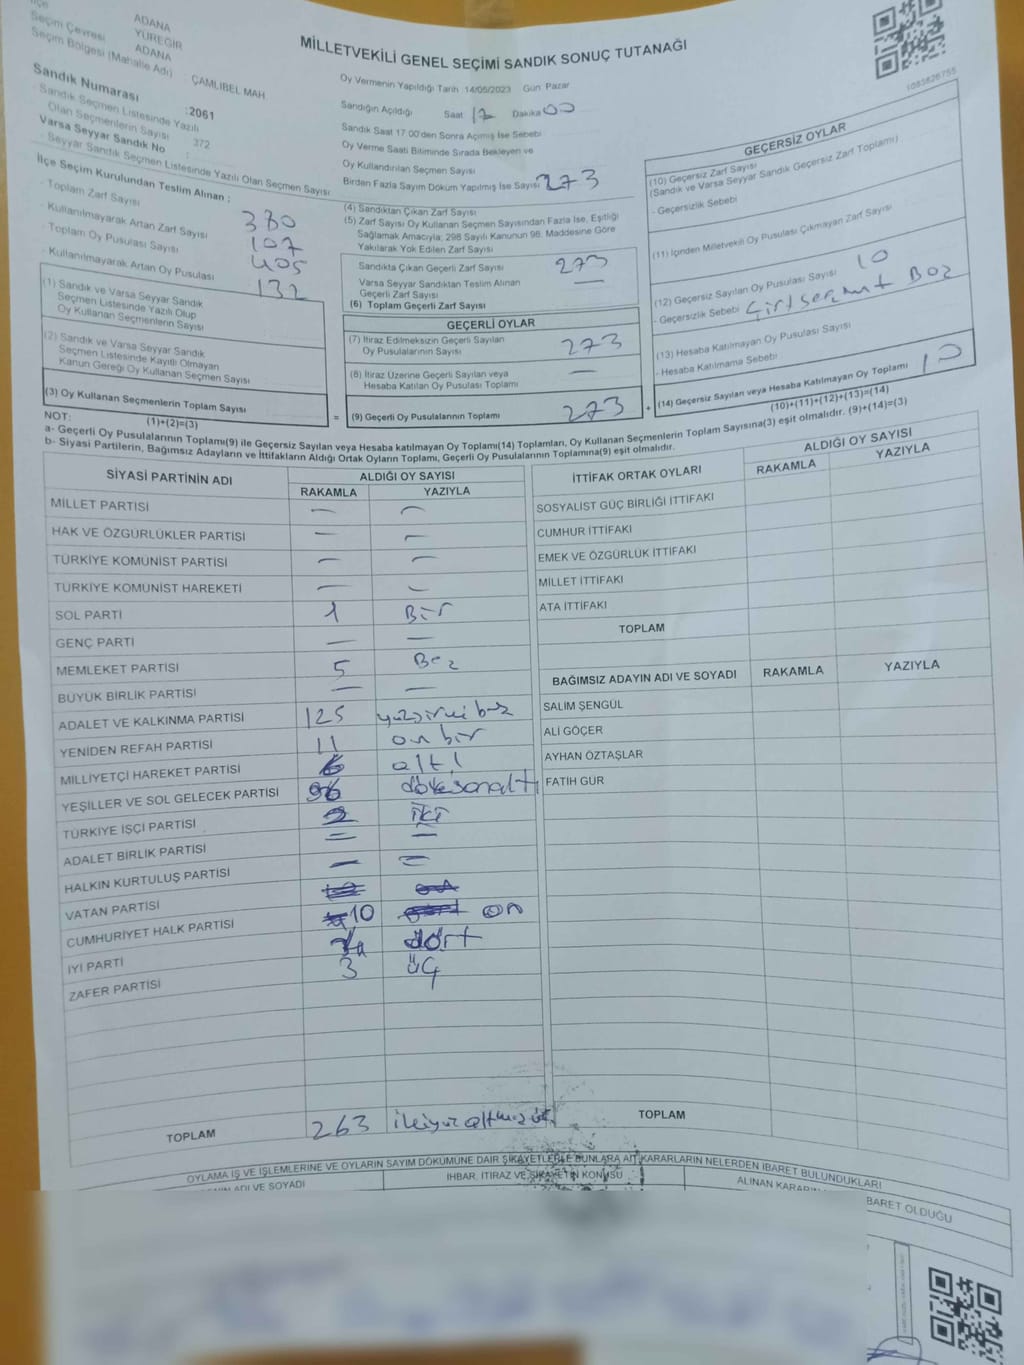 İlçe
ADANA
Seçim Çevresi YÜREĞİR
Seçim Bölgesi (Mahalle Adı) ADANA
ÇAMLIBEL MAH
Sandık Numarası :2061
- Sandık Seçmen Listesinde Yazılı
Olan Seçmenlerin Sayısı 372
Varsa Seyyar Sandık No :
- Seyyar Sandık Seçmen Listesinde Yazılı Olan Seçmen Sayısı
İlçe Seçim Kurulundan Teslim Alınan ;
- Toplam Zarf Sayısı 380
- Kullanılmayarak Artan Zarf Sayısı 107
- Toplam Oy Pusulası Sayısı 405
- Kullanılmayarak Artan Oy Pusulası 132
(1) Sandık ve Varsa Seyyar Sandık
Seçmen Listesinde Yazılı Olup
Oy Kullanan Seçmenlerin Sayısı
(2) Sandık ve Varsa Seyyar Sandık
Seçmen Listesinde Kayıtlı Olmayan
Kanun Gereği Oy Kullanan Seçmen Sayısı
(3) Oy Kullanan Seçmenlerin Toplam Sayısı
(1)+(2)=(3)
MİLLETVEKİLİ GENEL SEÇİMİ SANDIK SONUÇ TUTANAĞI
Oy Vermenin Yapıldığı Tarih 14/05/2023 Gün: Pazar
Sandığın Açıldığı Saat 17 Dakika 00
Sandık Saat 17.00'den Sonra Açımış İse Sebebi
Oy Verme Saati Bitiminde Sırada Bekleyen ve
Oy Kullandırılan Seçmen Sayısı
Birden Fazla Sayım Döküm Yapılmış İse Sayısı 273
(4) Sandıktan Çıkan Zarf Sayısı
(5) Zarf Sayısı Oy Kullanan Seçmen Sayısından Fazla İse, Eşitliği
Sağlamak Amacıyla; 298 Sayılı Kanunun 98. Maddesine Göre
Yakılarak Yok Edilen Zarf Sayısı
Sandıkta Çıkan Geçerli Zarf Sayısı 273
Varsa Seyyar Sandıktan Teslim Alınan
Geçerli Zarf Sayısı —
(6) Toplam Geçerli Zarf Sayısı
GEÇERLİ OYLAR
(7) İtiraz Edilmeksizin Geçerli Sayılan
Oy Pusulalarının Sayısı 273
(8) İtiraz Üzerine Geçerli Sayılan veya
Hesaba Katılan Oy Pusulası Toplamı —
= (9) Geçerli Oy Pusulalarının Toplamı 273 +
1083826755
GEÇERSİZ OYLAR
(10) Geçersiz Zarf Sayısı
(Sandık ve Varsa Seyyar Sandık Geçersiz Zarf Toplamı)
- Geçersizlik Sebebi
(11) İçinden Milletvekili Oy Pusulası Çıkmayan Zarf Sayısı
(12) Geçersiz Sayılan Oy Pusulası Sayısı 10
- Geçersizlik Sebebi
(13) Hesaba Katılmayan Oy Pusulası Sayısı
- Hesaba Katılmama Sebebi
(14) Geçersiz Sayılan veya Hesaba Katılmayan Oy Toplamı 10
(10)+(11)+(12)+(13)=(14)
NOT:
a- Geçerli Oy Pusulalarının Toplamı(9) ile Geçersiz Sayılan veya Hesaba katılmayan Oy Toplamı(14) Toplamları, Oy Kullanan Seçmenlerin Toplam Sayısına(3) eşit olmalıdır. (9)+(14)=(3)
b- Siyasi Partilerin, Bağımsız Adayların ve İttifakların Aldığı Ortak Oyların Toplamı, Geçerli Oy Pusulalarının Toplamına(9) eşit olmalıdır.
SİYASİ PARTİNİN ADI ALDIĞI OY SAYISI
RAKAMLA YAZIYLA
MİLLET PARTİSİ — —
HAK VE ÖZGÜRLÜKLER PARTİSİ — —
TÜRKİYE KOMÜNİST PARTİSİ — —
TÜRKİYE KOMÜNİST HAREKETİ — —
SOL PARTİ 1 Bir
GENÇ PARTİ — —
MEMLEKET PARTİSİ 5 Beş
BÜYÜK BİRLİK PARTİSİ — —
ADALET VE KALKINMA PARTİSİ 125
YENİDEN REFAH PARTİSİ 11 on bir
MİLLİYETÇİ HAREKET PARTİSİ 6 altı
YEŞİLLER VE SOL GELECEK PARTİSİ 96
TÜRKİYE İŞÇİ PARTİSİ 2 iki
ADALET BİRLİK PARTİSİ = =
HALKIN KURTULUŞ PARTİSİ — =
VATAN PARTİSİ
CUMHURİYET HALK PARTİSİ 10 on
İYİ PARTİ dört
ZAFER PARTİSİ 3 üç
TOPLAM 263 ikiyüz altmış üç
İTTİFAK ORTAK OYLARI ALDIĞI OY SAYISI
RAKAMLA YAZIYLA
SOSYALİST GÜÇ BİRLİĞİ İTTİFAKI
CUMHUR İTTİFAKI
EMEK VE ÖZGÜRLÜK İTTİFAKI
MİLLET İTTİFAKI
ATA İTTİFAKI
TOPLAM
BAĞIMSIZ ADAYIN ADI VE SOYADI RAKAMLA YAZIYLA
SALİM ŞENGÜL
ALİ GÖÇER
AYHAN ÖZTAŞLAR
FATİH GÜR
TOPLAM
OYLAMA İŞ VE İŞLEMLERİNE VE OYLARIN SAYIM DÖKÜMÜNE DAİR ŞİKAYETLERLE BUNLARA AİT KARARLARIN NELERDEN İBARET BULUNDUKLARI
ADI VE SOYADI İHBAR, İTİRAZ VE ŞİKAYETİN KONUSU ALINAN KARARIN
BARET OLDUĞU